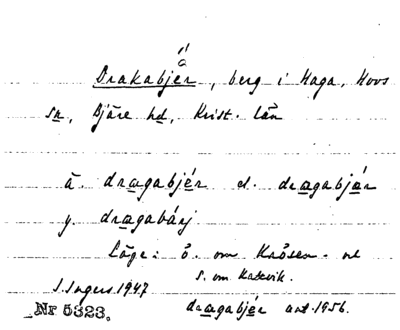 á
Drakabjer, berg i Haga, Hovs
sn, Bjäre hd, Krist. län
ä. dragabjér el. dragabjár
y. dragabárj
Läge: ö. om
s. om Kattvik.
S. Ingers 1947
Nr 5323.
dragabjér ant. 1956.